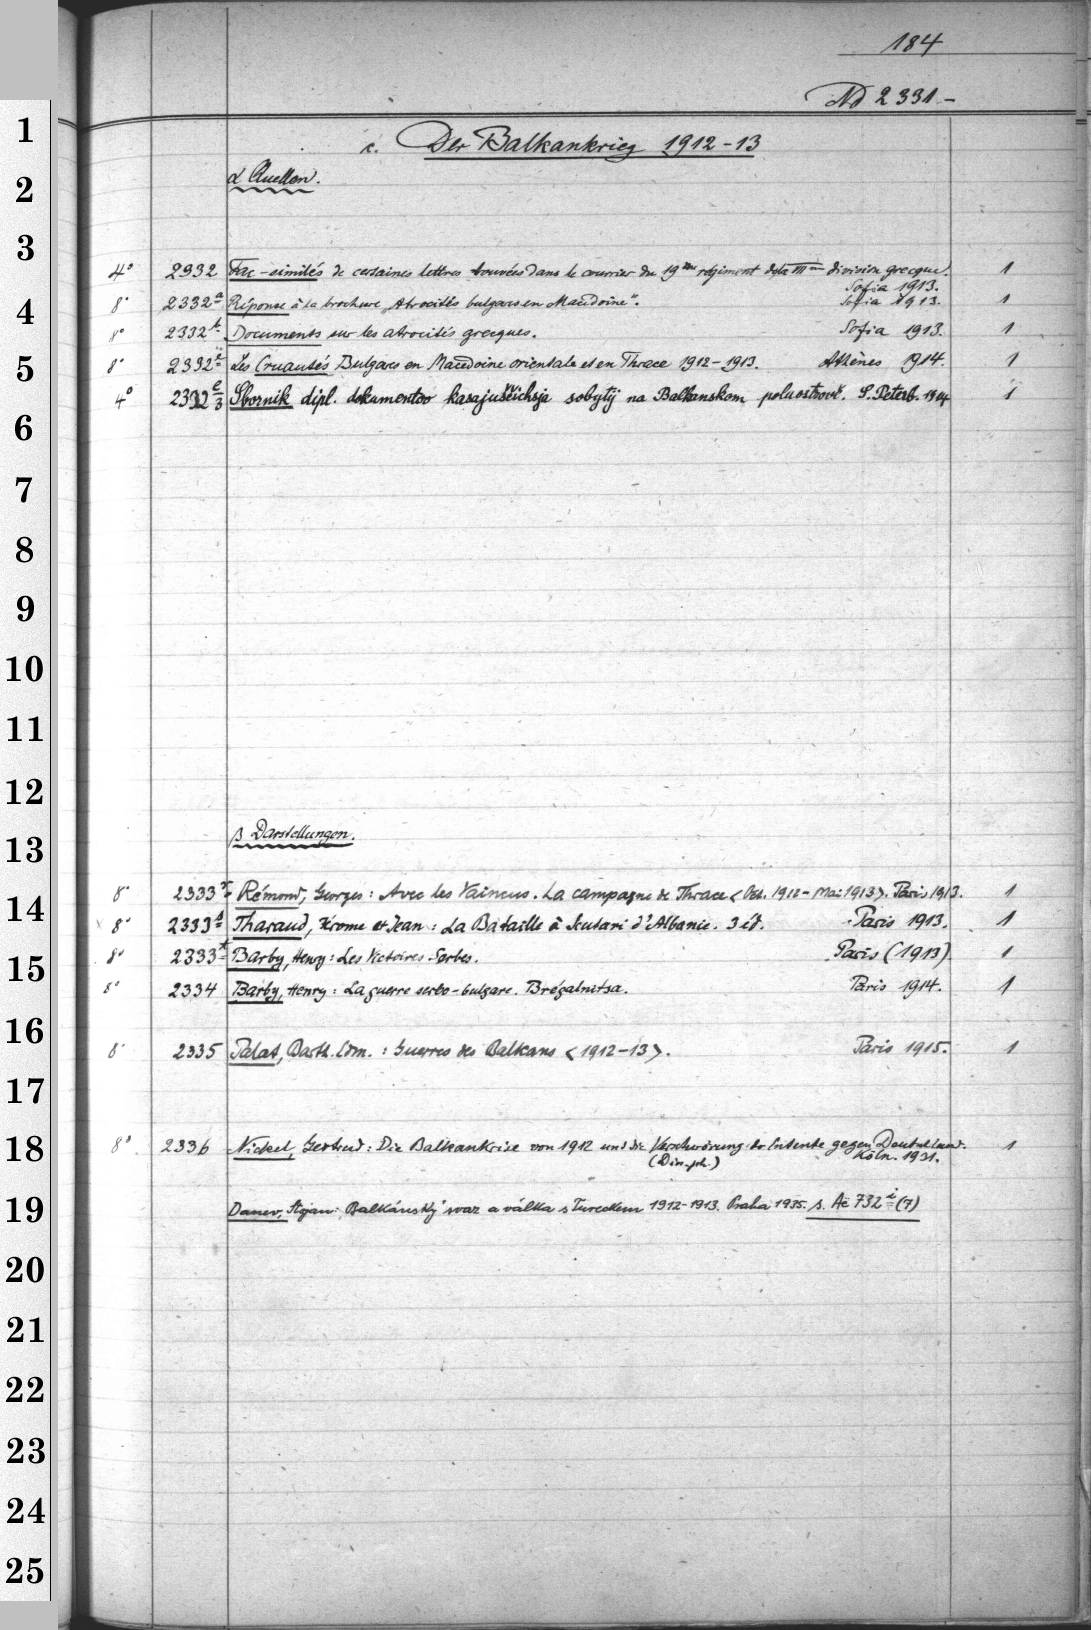 184
Nd 2331-
1
c. Der Balkankrieg 1912-13
2
α Quellen.
3
4° 2332 Fac-similés de certaines lettres trouvées dans le courrier du 19me régiment de la IIIme division grecque. 1
Sofia 1913.
4
8° 2332a Réponse à la brochure „Atrocités bulgares en Macédoine". Sofia 1913. 1
8° 2332b Documents sur les atrocités grecques. Sofia 1913. 1
5
8° 2332c Les Cruautés Bulgares en Macédoine orientale et en Thrace 1912-1913. Athènes 1914. 1
4° 2332 Sbornik dipl. dokumentov kasajuščichsja sobytij na Balkanskom poluostrově. S. Peterb. 1914 1
6
7
8
9
10
11
12
β Darstellungen.
13
8° 2333 Rémond, Georges: Avec les Vaincus. La campagne de Thrace <Oct. 1912-Mai 1913>. Paris 1913. 1
14
8° 2333 Tharaud, Jérome et Jean: La Bataille à Scutari d'Albanie. 3 éd. Paris 1913. 1
8° 2333 Barby, Henry: Les Victoires Serbes. Paris (1913) 1
15
8° 2334 Barby, Henry: La guerre serbo-bulgare. Brégalnitsa. Paris 1914. 1
16
8° 2335 Palat, Barth. Edm.: Guerres des Balkans <1912-13>. Paris 1915. 1
17
18
8° 2336 Nickel, Gertrud: Die Balkankrise von 1912 und die Verschwörung der Entente gegen Deutschland. 1
(Diss. ph.) Köln. 1931.
19
Danev, Stojan: Balkánský svaz a válka s Tureckem 1912-1913. Praha 1935. s. Ae 732i (7)
20
21
22
23
24
25